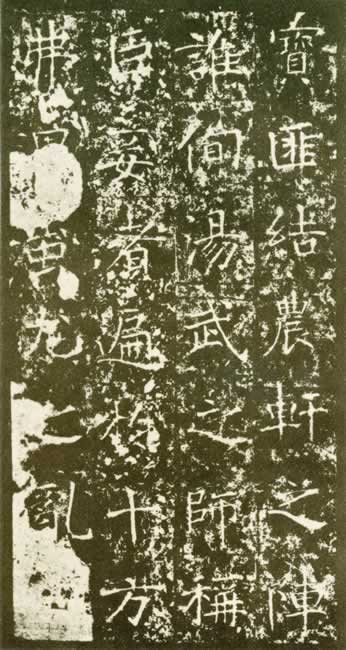 賓匪結農軒之陣
誰徇湯武之師稱
臣妾者遍於十方
弗蚩尤之亂